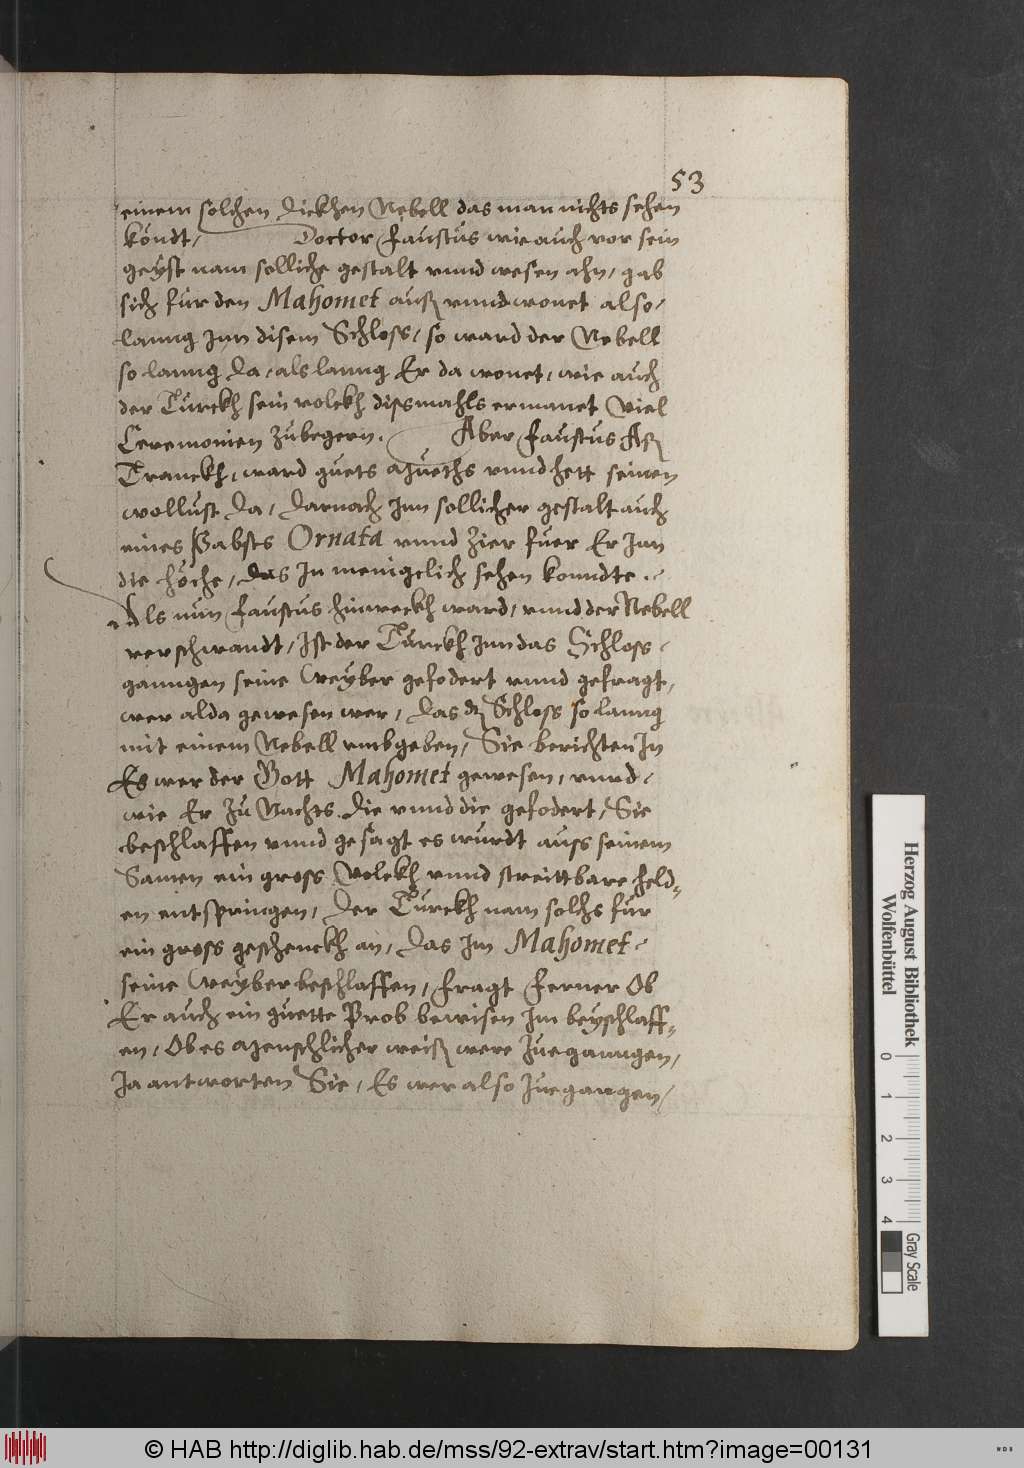 53
einem solchen dickhen Nebell das man nichts sehen
köndt, Doctor Faustus wie auch vor sein
geyst nam solliche gestalt vnnd wesen ahn, gab
sich für den Mahomet auß vnnd wonet also
lanng Jnn disem Schloss, so ward der Nebell
so lanng da, als lanng Er da wonet, wie auch
der Türckh sein volckh dissmahls ermanet viel
Ceremonien zubegern. Aber Faustus Aß
Tranckh, ward guets Mueths vnnd hett seinen
wollust da, darnach Jnn sollicher gestalt auch
eines Pabsts Ornata vnnd Zier fuer Er Jnn
die höche, das Jn menigelich sehen konndte.
Als nun Faustus hinweckh ward, vnnd der Nebell
verschwandt, Ist der Türckh Jnn das Schloss
ganngen seine Weyber gefodert vnnd gefragt,
wer alda gewesen wer, das dz Schloss so lanng
mit einem Nebell vmbgeben, Sie berichten Jn
Es wer der Gott Mahomet gewesen, vnnd
wie Er zu Nachts die vnnd die gefodert, Sie
beschlaffen vnnd gesagt es wurdt auss seinem
Samen ein gross Volckh vnnd streittbare held-
en entspringen, der Türckh nam solchs für
ein gross geschenckh an, das Im Mahomet
seine Weyber beschlaffen, fragt ferner Ob
Er auch ein guette Prob bewisen Im beyschlaff-
en, Ob es Menschlicher weiß were zueganngen,
Ja antworten Sie, Es wer also zuegangen,
Herzog August Bibliothek
Wolfenbüttel
0 1 2 3 4
Gray Scale
© HAB http://diglib.hab.de/mss/92-extrav/start.htm?image=00131
WDB